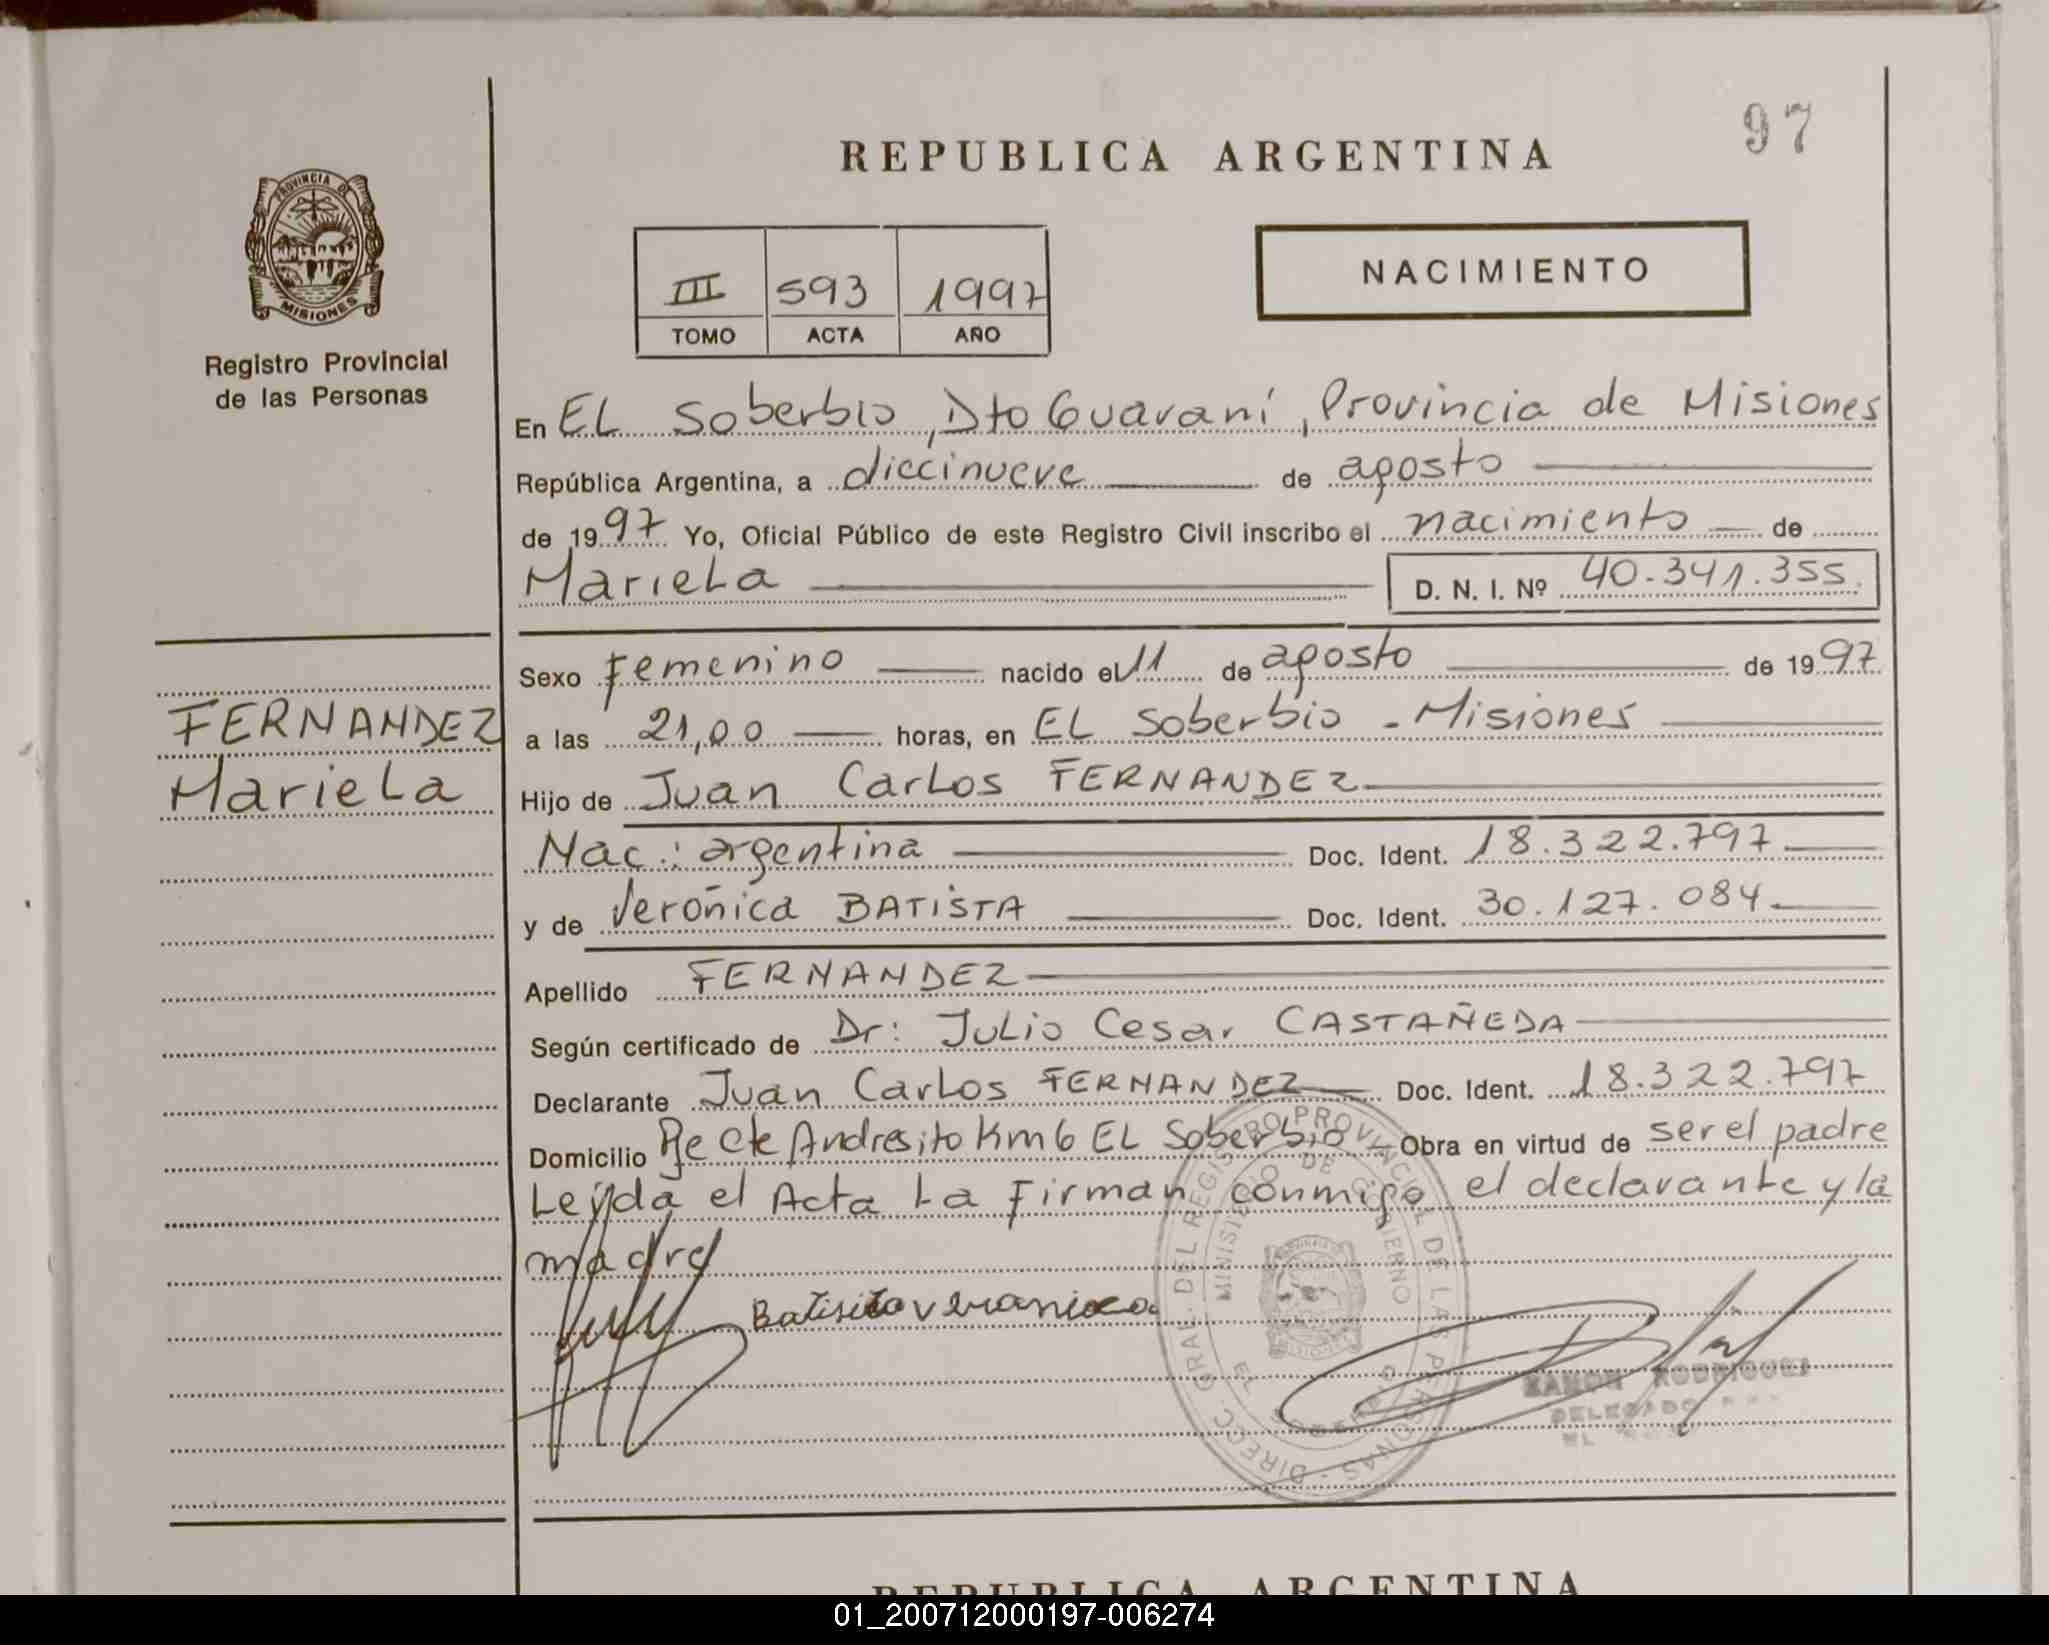 97
REPUBLICA ARGENTINA
PROVINCIA DE
MISIONES
Registro Provincial
de las Personas
III 593 1997
TOMO ACTA AÑO
NACIMIENTO
En EL Soberbio, Dto Guaraní, Provincia de Misiones
República Argentina, a diecinueve de agosto
de 1997 Yo, Oficial Público de este Registro Civil inscribo el nacimiento de
Mariela D. N. I. Nº 40.341.355.
Sexo femenino nacido el 11 de agosto de 1997
FERNANDEZ
Mariela
a las 21,00 horas, en EL Soberbio - Misiones
Hijo de Juan Carlos FERNANDEZ
Nac: argentina Doc. Ident. 18.322.797
y de Verónica BATISTA Doc. Ident. 30.127.084
Apellido FERNANDEZ
Según certificado de Dr: Julio Cesar CASTAÑEDA
Declarante Juan Carlos FERNANDEZ Doc. Ident. 18.322.797
Domicilio Pje Cte Andresito Km 6 EL Soberbio Obra en virtud de ser el padre
Leída el Acta La Firman conmigo el declarante y la
madre
Batista veronica
DIRECC. GRAL. DEL REGISTRO PROVINCIAL DE LAS PERSONAS
MINISTERIO DE GOBIERNO
EL SOBERBIO
RAMON RODRIGUEZ
DELEGADO
EL
REPUBLICA ARGENTINA
01_200712000197-006274